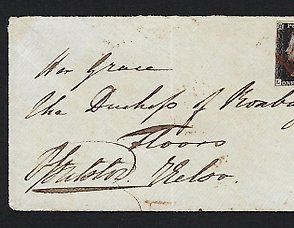 Her Grace
The Duchess of Roxbu
Floors
Kelso.